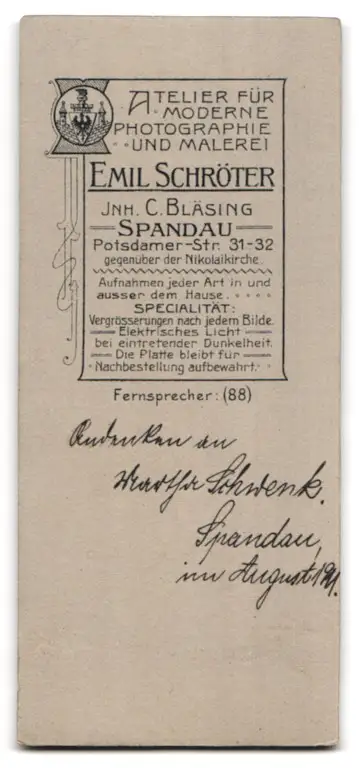 ATELIER FÜR
· MODERNE
PHOTOGRAPHIE
· · UND MALEREI
EMIL SCHRÖTER
JNH. C. BLÄSING
SPANDAU
Potsdamer-Str. 31-32
gegenüber der Nikolaikirche.
Aufnahmen jeder Art in und
ausser dem Hause. . . . .
SPECIALITÄT:
Vergrösserungen nach jedem Bilde.
Elektrisches Licht
bei eintretender Dunkelheit.
Die Platte bleibt für
Nachbestellung aufbewahrt.
Fernsprecher: (88)
Andenken an
Martha Schwenk.
Spandau,
im August